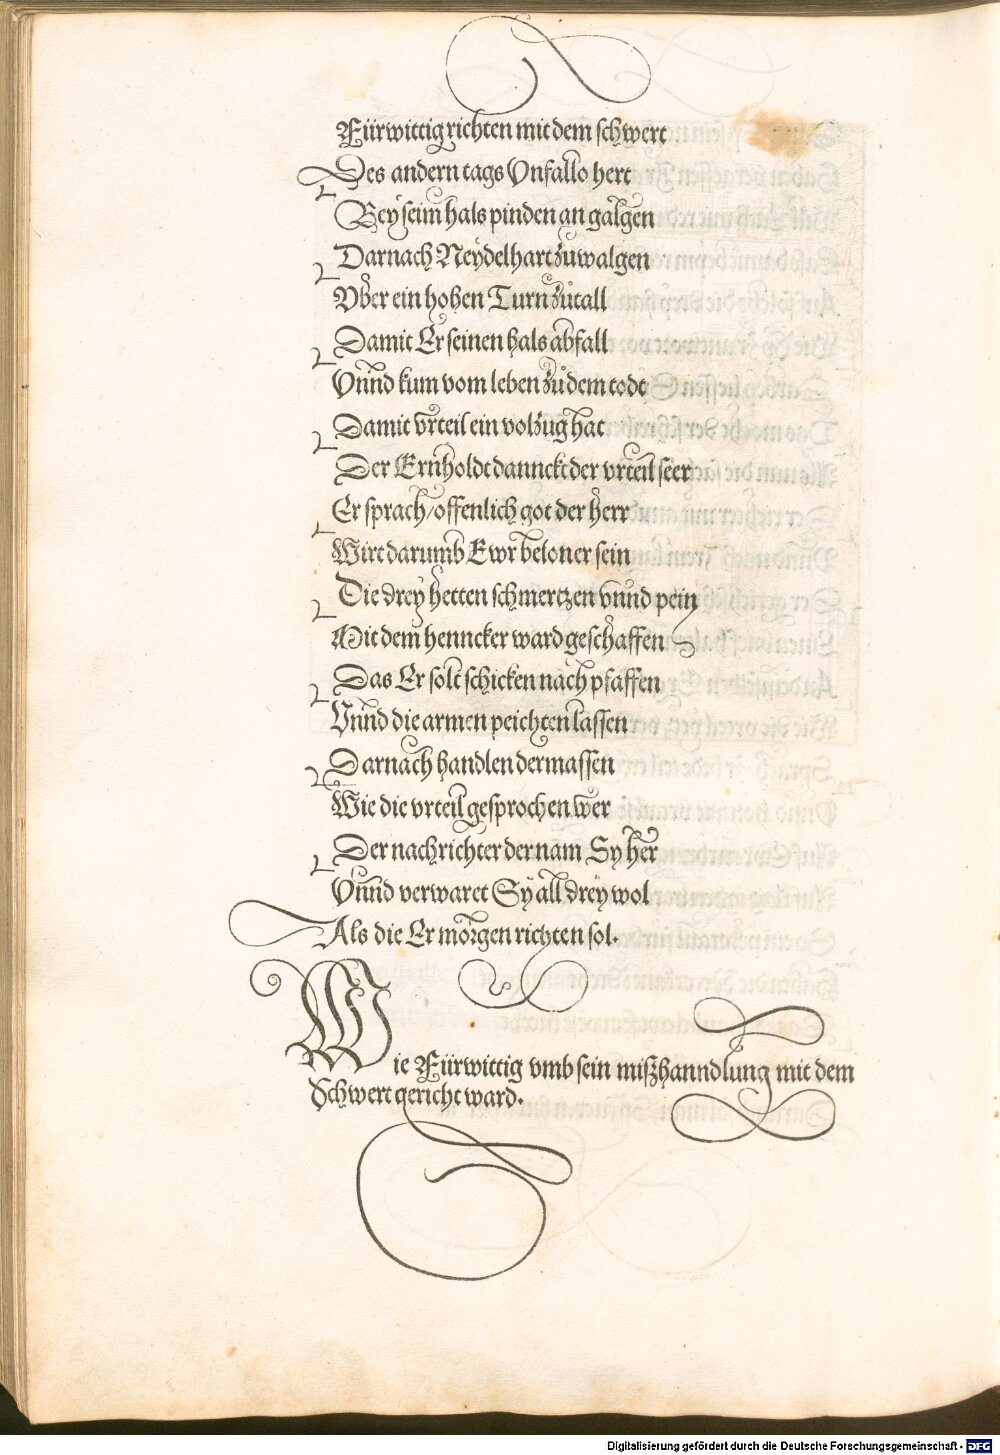 Fürwittig richten mit dem schwert
Des andern tags Vnfallo hert
Bey seim hals pinden an galgen
Darnach Neydelhart zuwalgen
Vber ein hohen Turn zůtall
Damit Er seinen hals abfall
Vnnd kum vom leben zů dem todt
Damit vrteil ein volzug hat
Der Ernholdt dannckt der vrteil seer
Er sprach / offenlich got der herr
Wirt darumb Ewr beloner sein
Die drey hetten schmertzen vnnd pein
Mit dem henncker ward geschaffen
Das Er solt schicken nach pfaffen
Vnnd die armen peichten lassen
Darnach handlen dermassen
Wie die vrteil gesprochen wer
Der nachrichter der nam Sy her
Vnnd verwaret Sy all drey wol
Als die Er morgen richten sol.
Wie Fürwittig vmb sein miszhanndlung mit dem
Schwert gericht ward.
Digitalisierung gefördert durch die Deutsche Forschungsgemeinschaft - DFG